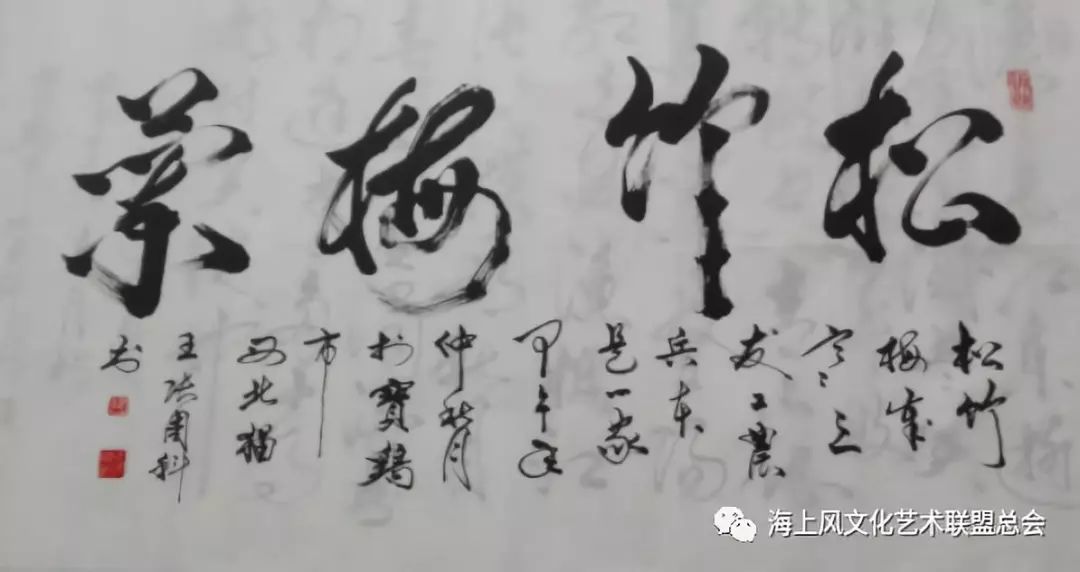 松竹梅菊
松竹
梅歲
寒三
友工農
兵本
是一家
甲午年
仲秋月
於寶鷄
市
西北
王
书
海上风文化艺术联盟总会